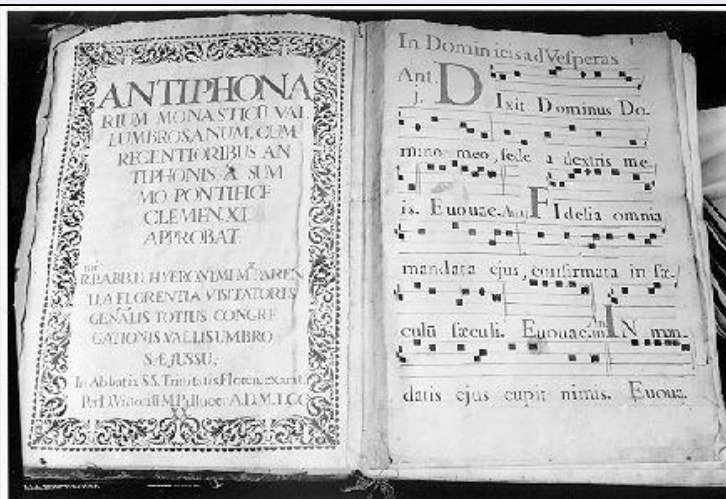 ANTIPHONA
RIUM MONASTICŪ VAL
LUMBROSANUM, CUM
RECENTIORIBUS AN
TIPHONIS A SUM
MO PONTIFICE
CLEMEN. XI.
APPROBAT.
HYERONIMI
FLORENTIA VISITATORIS
TOTIUS CONGRE
GATIONIS VALLISUMBRO
SÆ JUSSU,
In Abbatia S.S. Trinitatis Floren.
In Dominicis ad Vesperas
1
Ant. DIxit Dominus Do.
mino meo, sede a dextris me
is. Euouae. Ant. FIdelia omnia
mandata ejus, confirmata in sæ.
culū sæculi. Euouae. An. IN man.
datis ejus cupit nimis. Euoua.